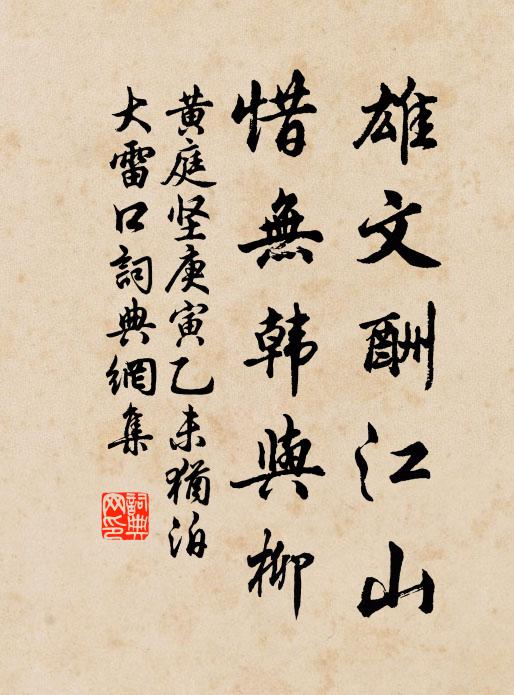 雄文酬江山
惜無韓與柳
黄庭坚庚寅乙未犹泊
大雷口詞典網集
詞典网印